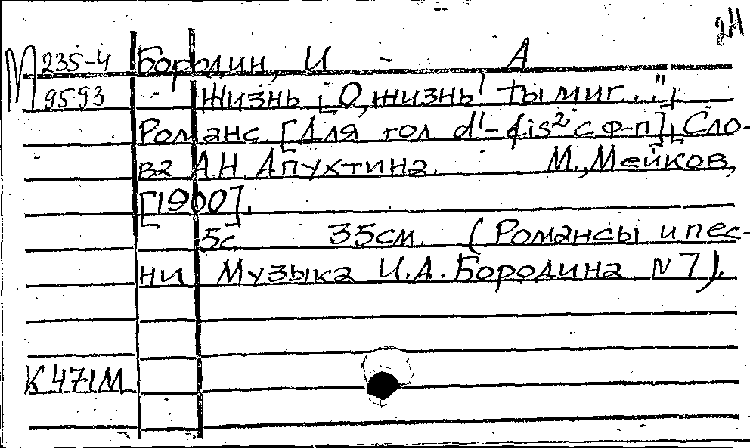 2Н
М 235-4 Бородин, И - А
9593 - Жизнь ["О, жизнь! ты миг..."]
Романс [Для гол d¹-fis² с ф-п], Сло-
ва А.Н Апухтина. М., Мейков,
[1900].
5с 33см (Романсы и пес-
ни Музыка И.А. Бородина N 7).
К 471М